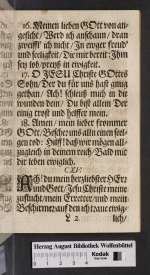 16. Meinen lieben GOtt von an-
gesicht / Werd ich anschaun / dran
zweiffl' ich nicht / In ewger freud
und seeligkeit / Die mir bereit: Ihm
sey lob, preyß in ewigkeit.
17. O JESU Christe GOttes
Sohn / Der du für uns hast gnug
gethan / Ach! schleuß mich in die
wunden dein / Du bist allein Der
einig trost und helffer mein.
18. Amen / mein lieber frommer
GOtt / Bescher uns alln einen seel-
gen tod: Hilff! daß wir mögen all-
zugleich in deinem reich / Bald mit
dir leben ewiglich.
Ach! du mein herzliebster HErr
und Gott / JEsu Christe / meine
zuflucht / mein Erretter / und mein
Beschirmer / auf den ich traue ewig-
L 2 lich /
Herzog August Bibliothek Wolfenbüttel